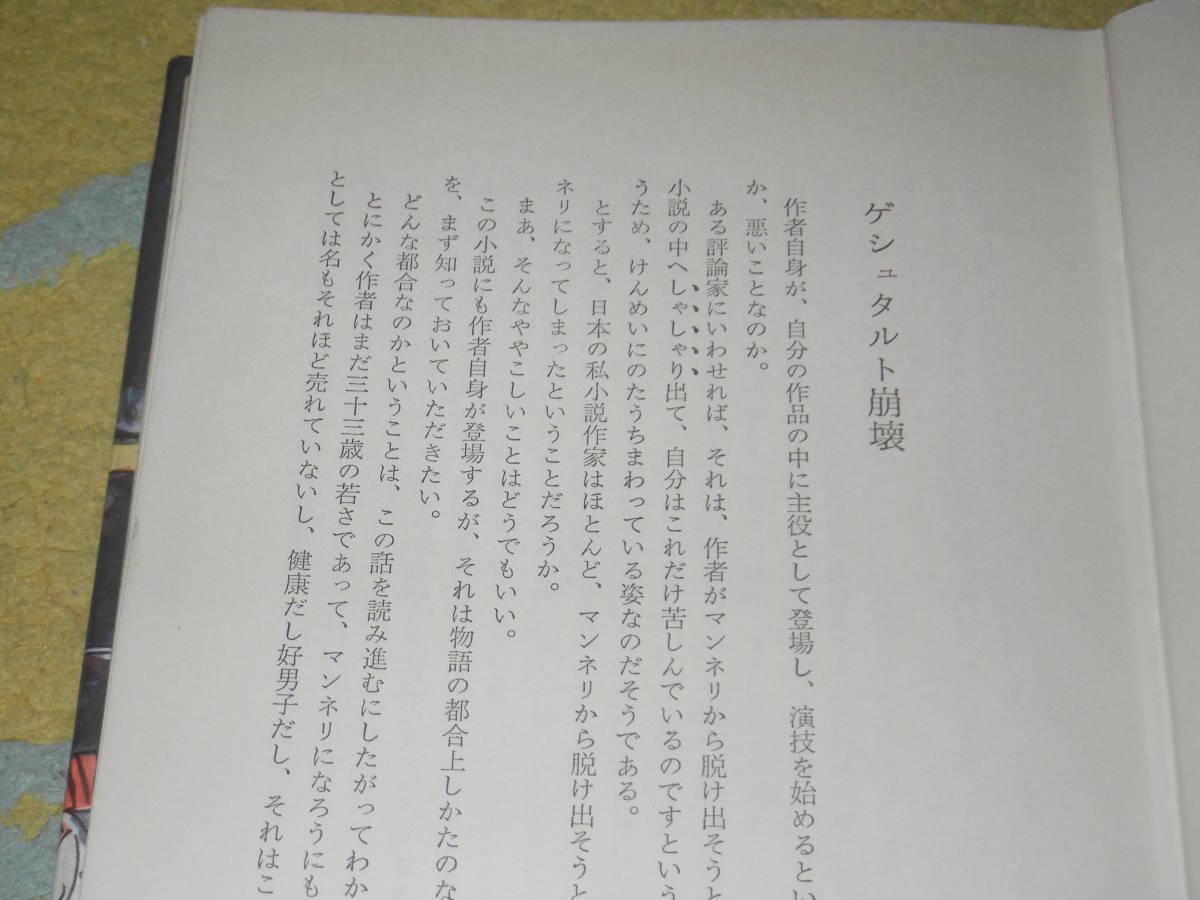 ゲシュタルト崩壊
作者自身が、自分の作品の中に主役として登場し、演技を始めるとい
か、悪いことなのか。
ある評論家にいわせれば、それは、作者がマンネリから脱け出そうと
小説の中へしゃしゃり出て、自分はこれだけ苦しんでいるのですという
うため、けんめいにのたうちまわっている姿なのだそうである。
とすると、日本の私小説作家はほとんど、マンネリから脱け出そうと
ネリになってしまったということだろうか。
まあ、そんなややこしいことはどうでもいい。
この小説にも作者自身が登場するが、それは物語の都合上しかたのな
を、まず知っておいていただきたい。
どんな都合なのかということは、この話を読み進むにしたがってわか
とにかく作者はまだ三十三歳の若さであって、マンネリになろうにも
としては名もそれほど売れていないし、健康だし好男子だし、それはこ